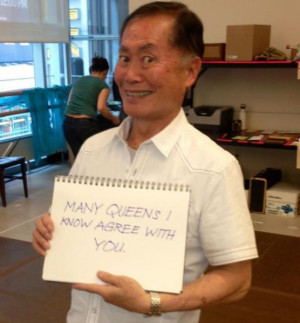 MANY QUEENS I
KNOW AGREE WITH
YOU.